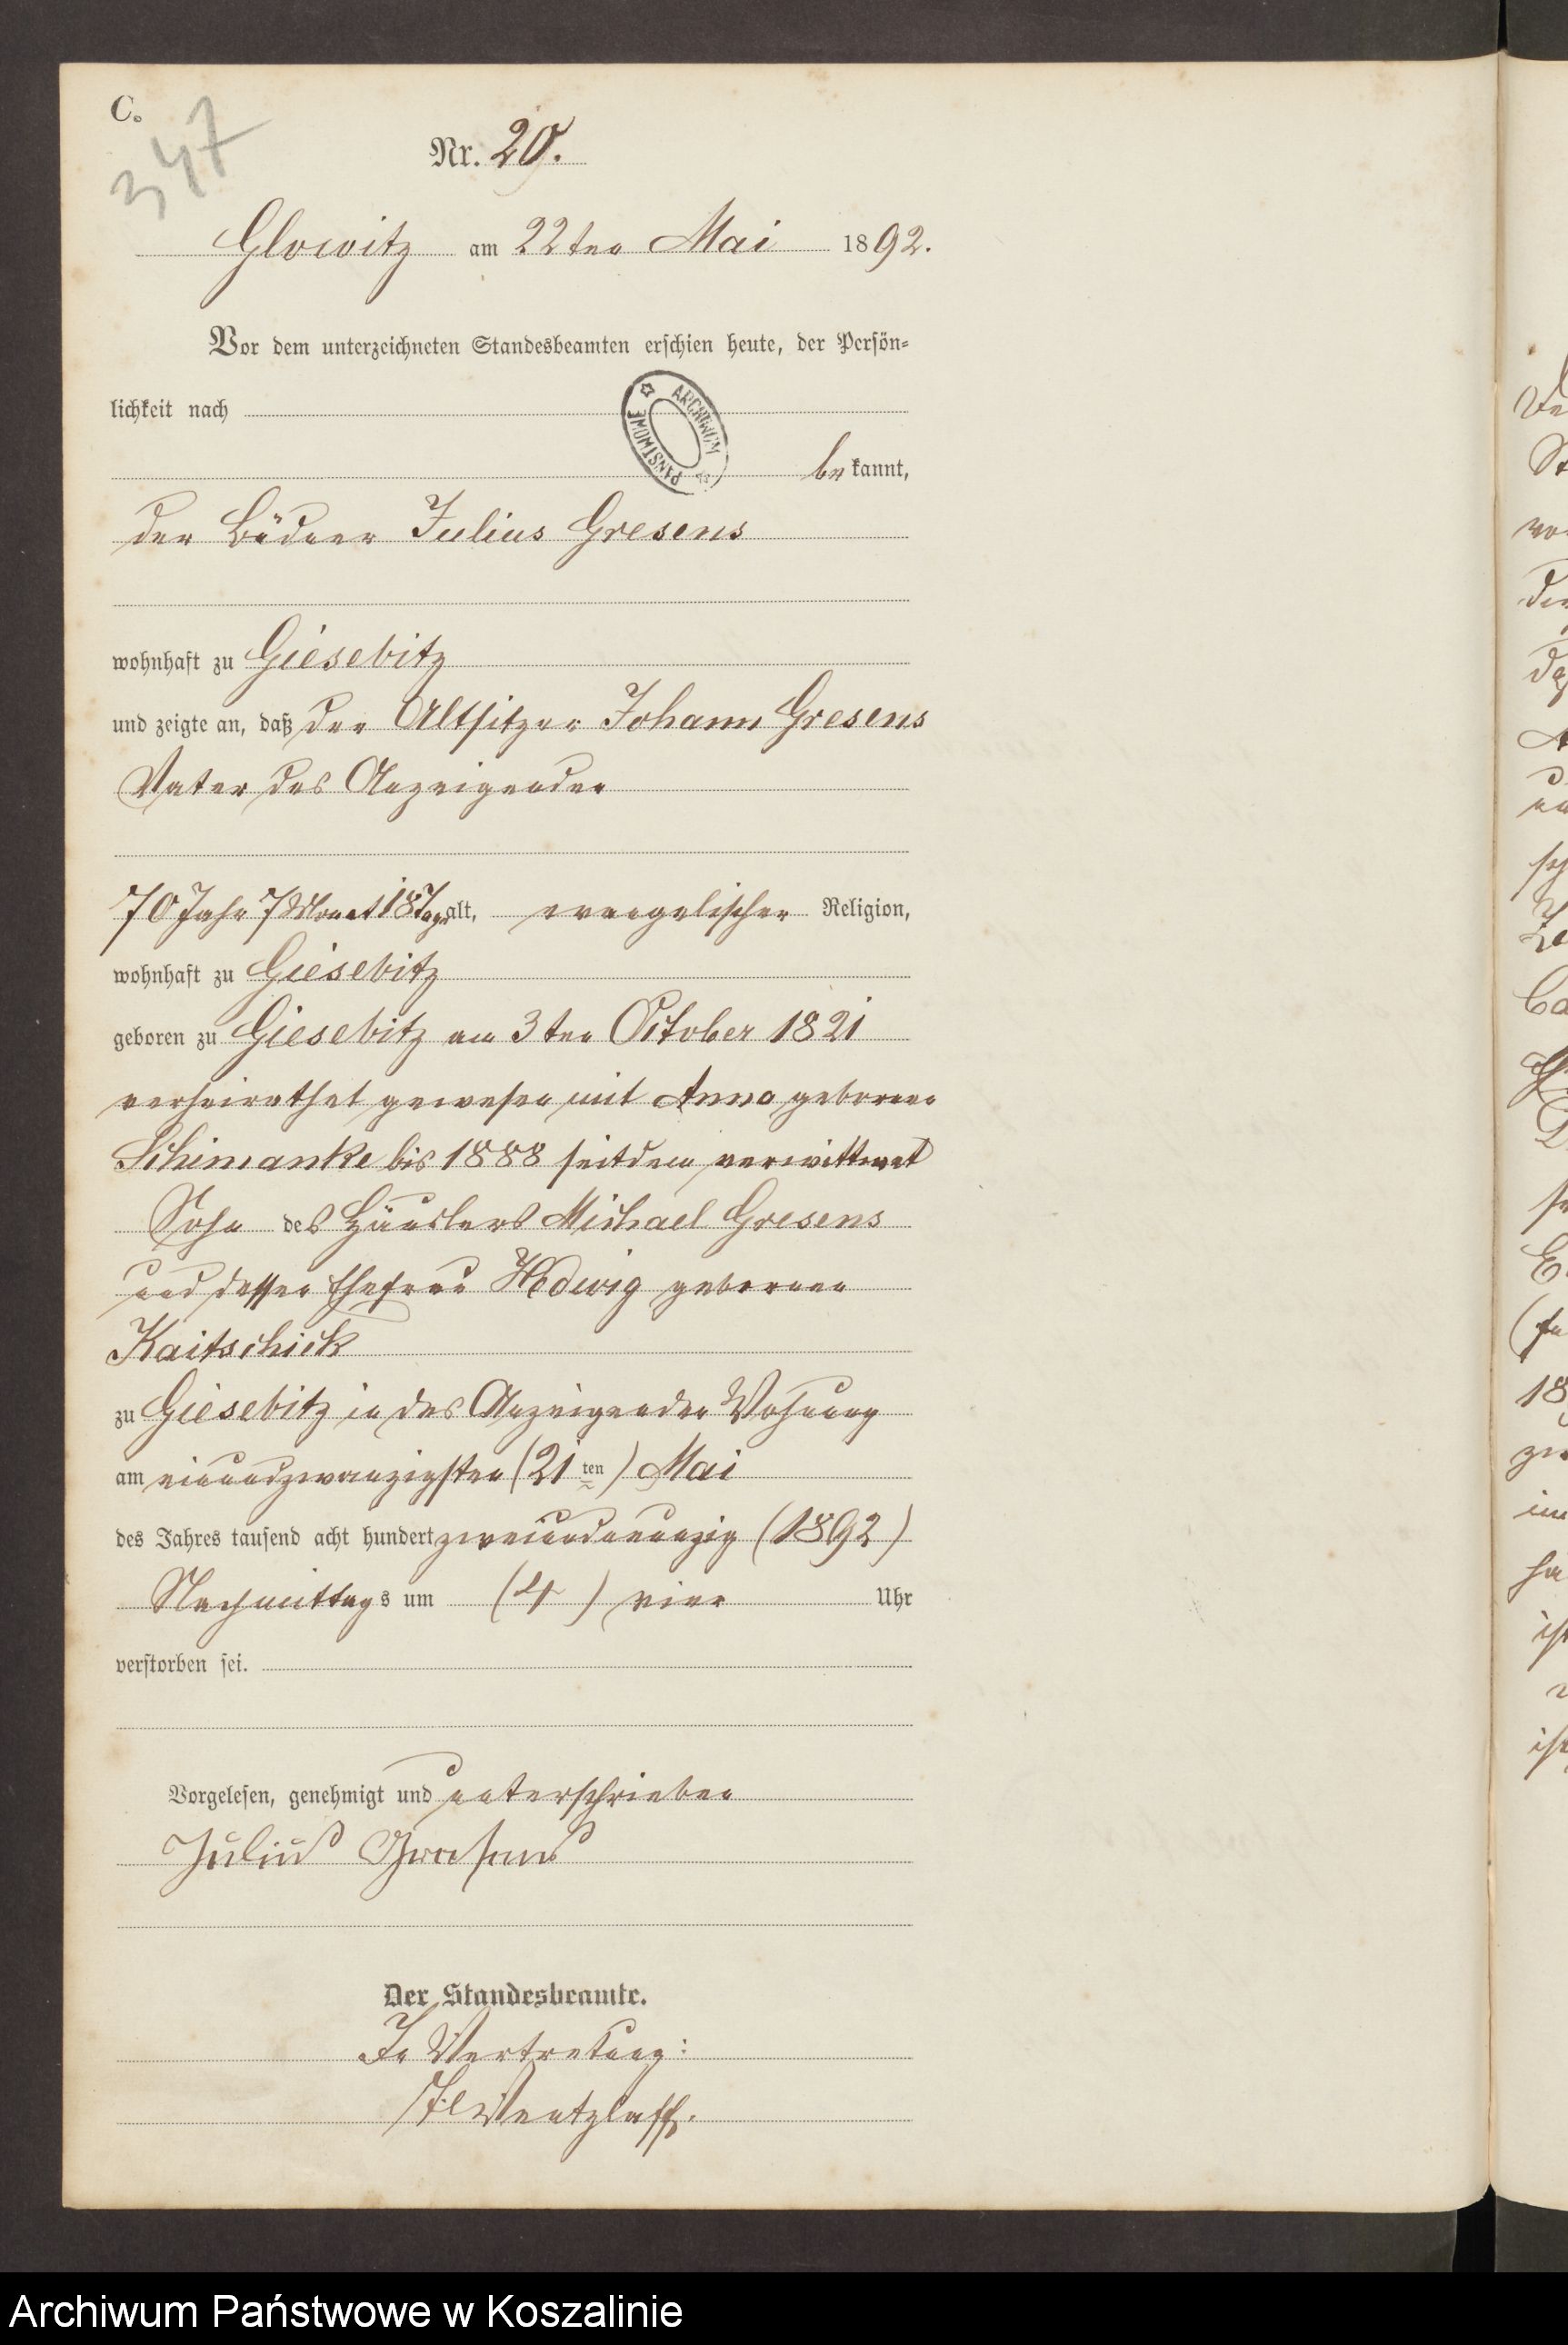 C.
347
Nr. 20.
Glowitz am 22ten Mai 1892.
Vor dem unterzeichneten Standesbeamten erschien heute, der Persön-
lichkeit nach
ARCHIWUM PAŃSTWOWE
bekannt,
der Büdner Julius Gresens
wohnhaft zu Giesebitz
und zeigte an, daß der Altsitzer Johann Gresens
Vater des Anzeigenden
70 Jahr 7 Monat 18 Tage alt, evangelischer Religion,
wohnhaft zu Giesebitz
geboren zu Giesebitz am 3ten October 1821
verheirathet gewesen mit Anna geborenen
Schimanke bis 1888 seitdem verwittwet
Sohn des Häuslers Michael Gresens
und dessen Ehefrau Hedwig geborenen
Kaitschick
zu Giesebitz in des Anzeigenden Wohnung
am einundzwanzigsten (21ten) Mai
des Jahres tausend acht hundert zweiundneunzig (1892)
Nachmittags um (4) vier Uhr
verstorben sei.
Vorgelesen, genehmigt und unterschrieben
Julius Gresens
Der Standesbeamte.
In Vertretung:
Wentzlaff.
Archiwum Państwowe w Koszalinie